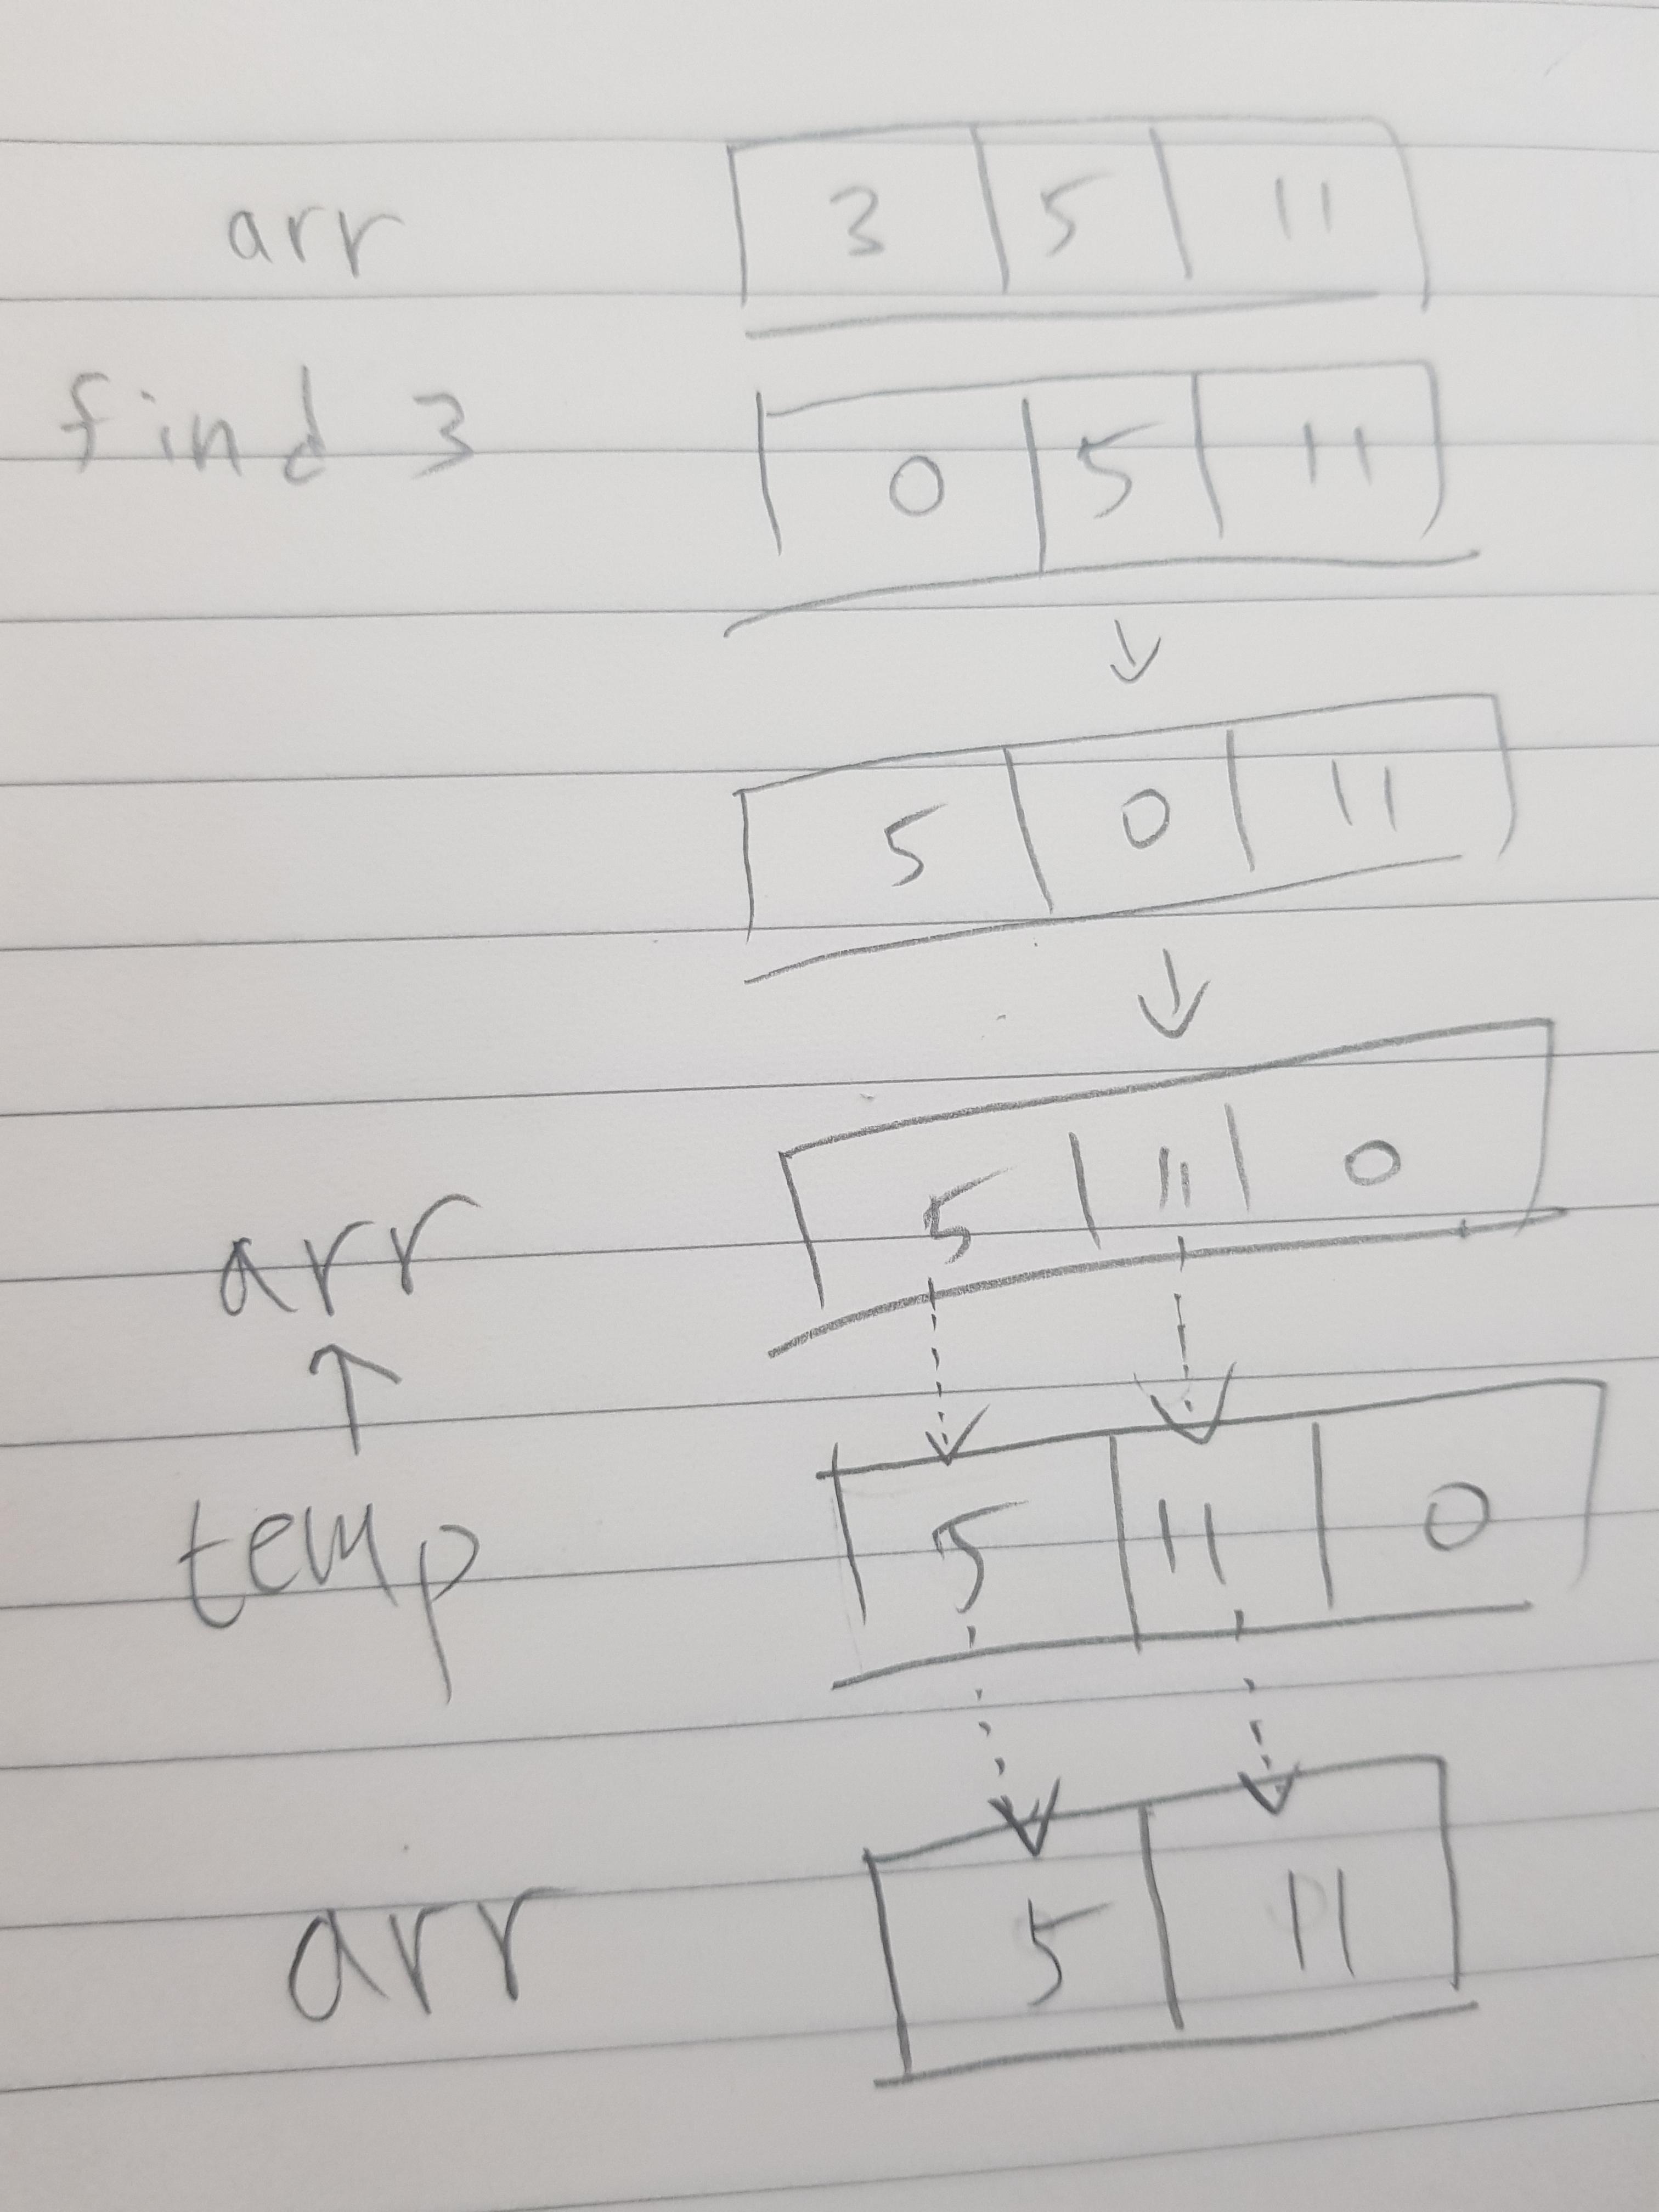 arr 3 5 11
find 3 0 5 11
5 0 11
arr 5 11 0
temp 5 11 0
arr 5 11